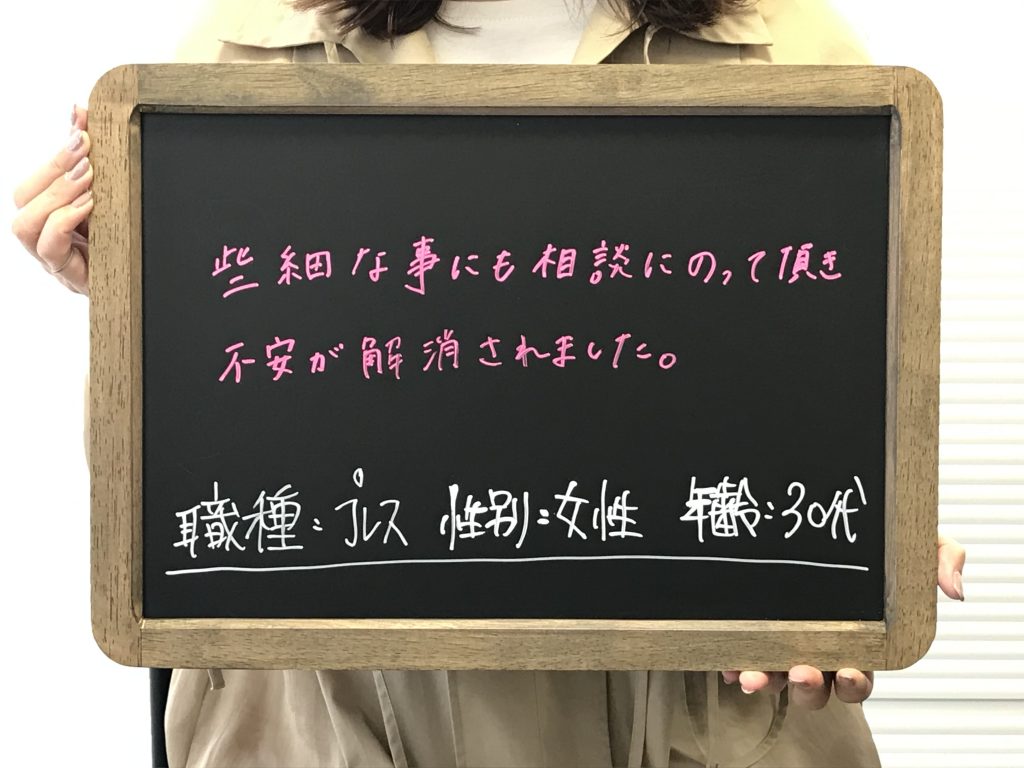 些細な事にも相談にのって頂き
不安が解消されました。
職種:プレス 性別:女性 年齢:30代